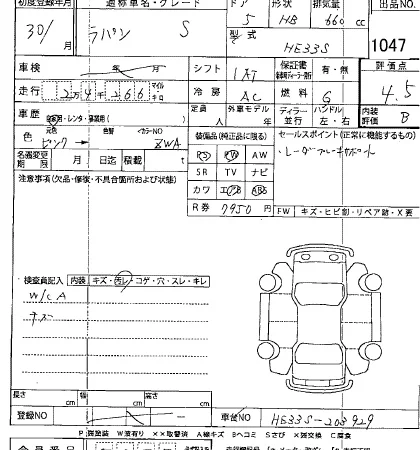 初度登録年月 通称車名・グレード ドア 形状 排気量 出品NO
30/ 月 ラパン S 5 HB 660 cc
型式 HE33S 1047
車検 年 月 シフト IAT 保証書 有・無 評価点
走行 2万4千266 マイル キロ 冷房 AC 燃料 G 4.5
車歴 自家用・レンタ・事業用( ) 定員 人 外車モデル 年 ディーラー 並行 ハンドル 左・右 内装評価 B
色 元色 ピンク → 色替 カラーNO ZWA 装備品(純正品に限る) セールスポイント(正常に機能するもの)
名義変更期限 月 日迄 積載 t PS PW AW レーダーブレーキサポート
注意事項(欠品・修復・不具合箇所および状態) SR TV ナビ
カワ エアB ABS
R券 7950 円 FW キズ・ヒビ割・リペア跡・X要
検査員記入 内装 キズ・汚レ・コゲ・穴・スレ・キレ
W/C A
長さ cm 幅 cm 高さ cm
登録NO 車台NO HE33S-203929
W波有り ××取替済 A線キズ Bヘコミ Sさび ×要交換 C腐食
会員番号